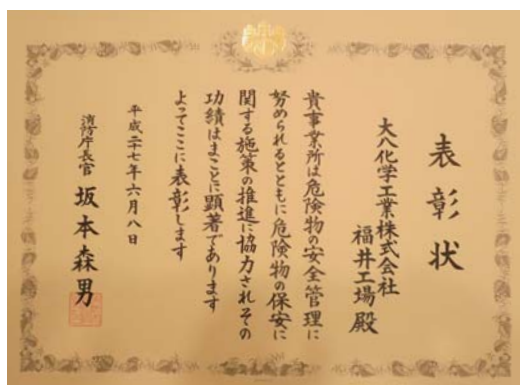 表彰状
大八化学工業株式会社
福井工場 殿
貴事業所は危険物の安全管理に
努められるとともに危険物の保安に
関する施策の推進に協力されその
功績はまことに顕著であります
よってここに表彰します
平成二十七年六月八日
消防庁長官 坂本森男